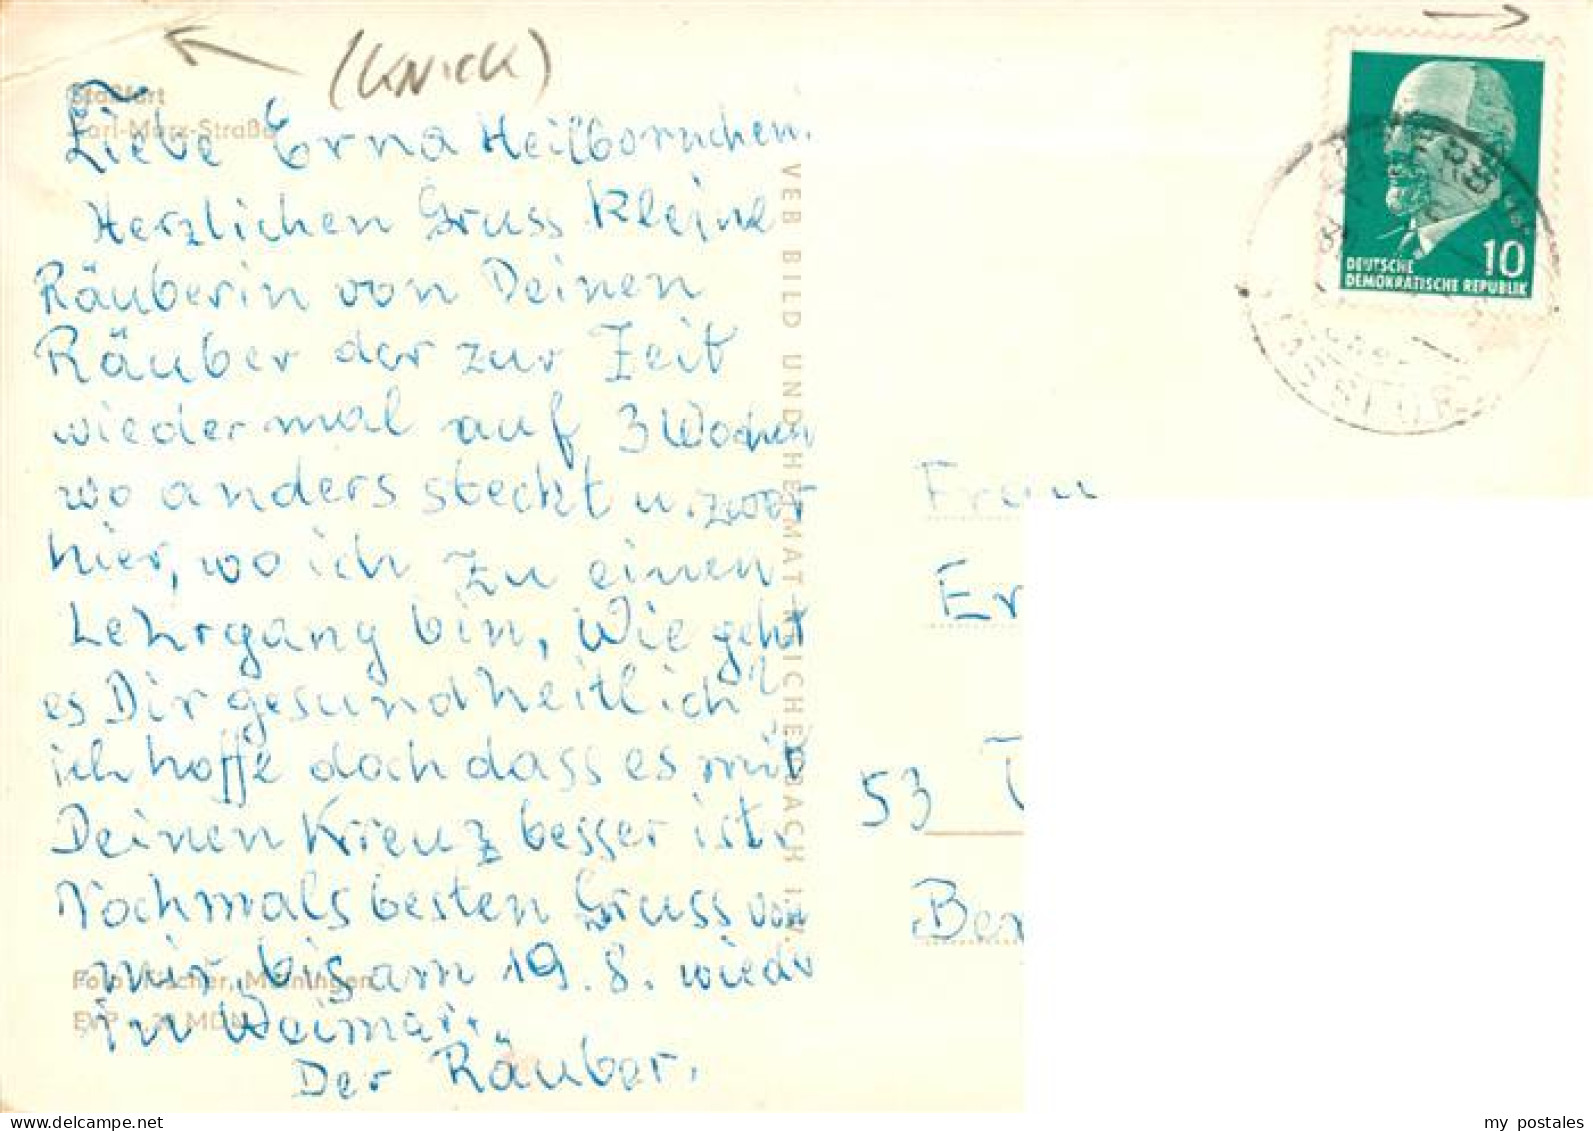 (KNICK)
Staßfurt
Karl-Marx-Straße
Liebe Erna Heilbornchen.
Herzlichen Gruss kleine
Räuberin von Deinen
Räuber der zur Zeit
wiedermal auf 3 Wochen
wo anders steckt u. zwar
hier, wo ich zu einen
Lehrgang bin, Wie geht
es Dir gesundheitlich?
ich hoffe doch dass es mit
Deinen Kreuz besser ist.
Nochmals besten Gruss von
mir, bis am 19.8. wieder
in Weimar.
Der Räuber.
Foto: Fischer, Meiningen
EVP MDN
VEB BILD UND HEIMAT REICHENBACH I. V.
10
DEUTSCHE
DEMOKRATISCHE REPUBLIK
Frau
Er
53
Ber
my postales
delcampe.net